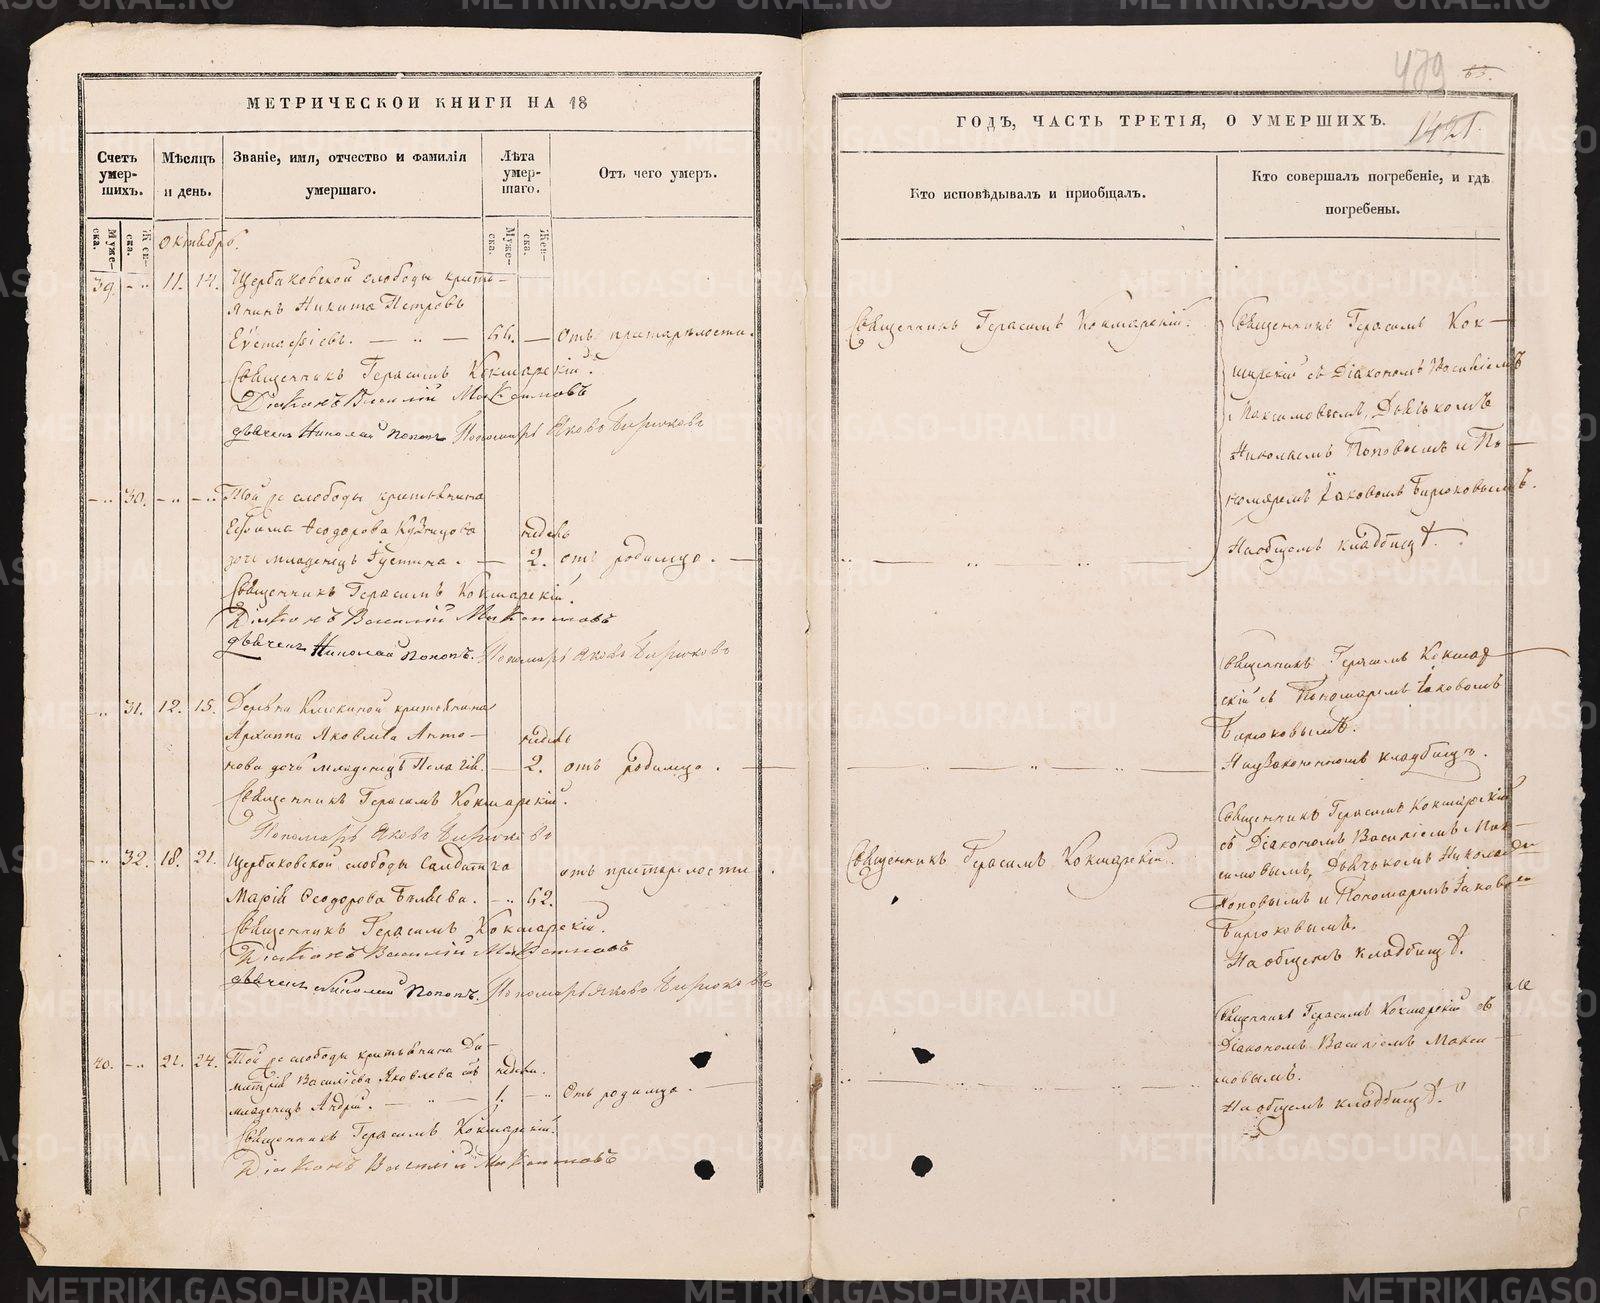 МЕТРИЧЕСКОЙ КНИГИ НА 18
Счетъ умер-шихъ.
Мѣсяцъ и день.
Званіе, имя, отчество и фамилія умершаго.
Лѣта умер-шаго.
Отъ чего умеръ.
Муже-ска.
Жен-ска.
Муже-ска.
Жен-ска.
Октябрь.
39. 11. 14. Щербаковской слободы кресть-
янинъ Никита Петровъ
Евстафіевъ. 66. Отъ престарѣлости.
Священникъ Герасимъ Кокшарскій.
Діаконъ Василій Максимовъ
дьячекъ Николай Поповъ Пономарь Яковъ Бирюковъ
30. Той же слободы крестьянина
Ефима Ѳеодорова Кузнецова недель
дочь младенецъ Іустина. 2. отъ родимца.
Священникъ Герасимъ Кокшарскій.
Діаконъ Василій Максимовъ
дьячекъ Николай Поповъ. Пономарь Яковъ Бирюковъ
31. 12. 15. Деревни крестьянина
Архиппа Яковлева Анто- недель
нова дочь младенецъ Пелагія. 2. отъ родимца.
Священникъ Герасимъ Кокшарскій.
Пономарь Яковъ Бирюковъ
32. 18. 21. Щербаковской слободы Солдатка отъ престарелости.
Марія Ѳеодорова Бѣляева. 62.
Священникъ Герасимъ Кокшарскій.
Діаконъ Василій Максимовъ
дьячекъ Николай Поповъ. Пономарь Яковъ Бирюковъ
40. 21. 24. Той же слободы крестьянина Ди-
митрія Василіева Яковлева сынъ недели.
младенецъ Андрей. 1. Отъ родимца.
Священникъ Герасимъ Кокшарскій.
Діаконъ Василій Максимовъ
479
63.
1421.
ГОДЪ, ЧАСТЬ ТРЕТІЯ, О УМЕРШИХЪ.
Кто исповѣдывалъ и приобщалъ.
Кто совершалъ погребеніе, и гдѣ погребены.
Священникъ Герасимъ Кокшарскій.
Священникъ Герасимъ Кок-
шарскій съ Діакономъ Василіемъ
Максимовымъ, Дьячькомъ
Николаемъ Поповымъ и По-
номаремъ Іаковомъ Бирюковымъ.
На общемъ кладбищѣ.
Священникъ Герасимъ Кокшар-
скій съ Пономаремъ Іаковомъ
Бирюковымъ.
На узаконенномъ кладбищѣ.
Священникъ Герасимъ Кокшарскій.
Священникъ Герасимъ Кокшарскій
съ Діакономъ Василіемъ Мак-
симовымъ, Дьячькомъ Николаемъ
Поповымъ и Пономаремъ Іаковомъ
Бирюковымъ.
На общемъ кладбищѣ.
Священникъ Герасимъ Кокшарскій съ
Діакономъ Василіемъ Макси-
мовымъ.
На общемъ кладбищѣ.
METRIKI.GASO-URAL.RU